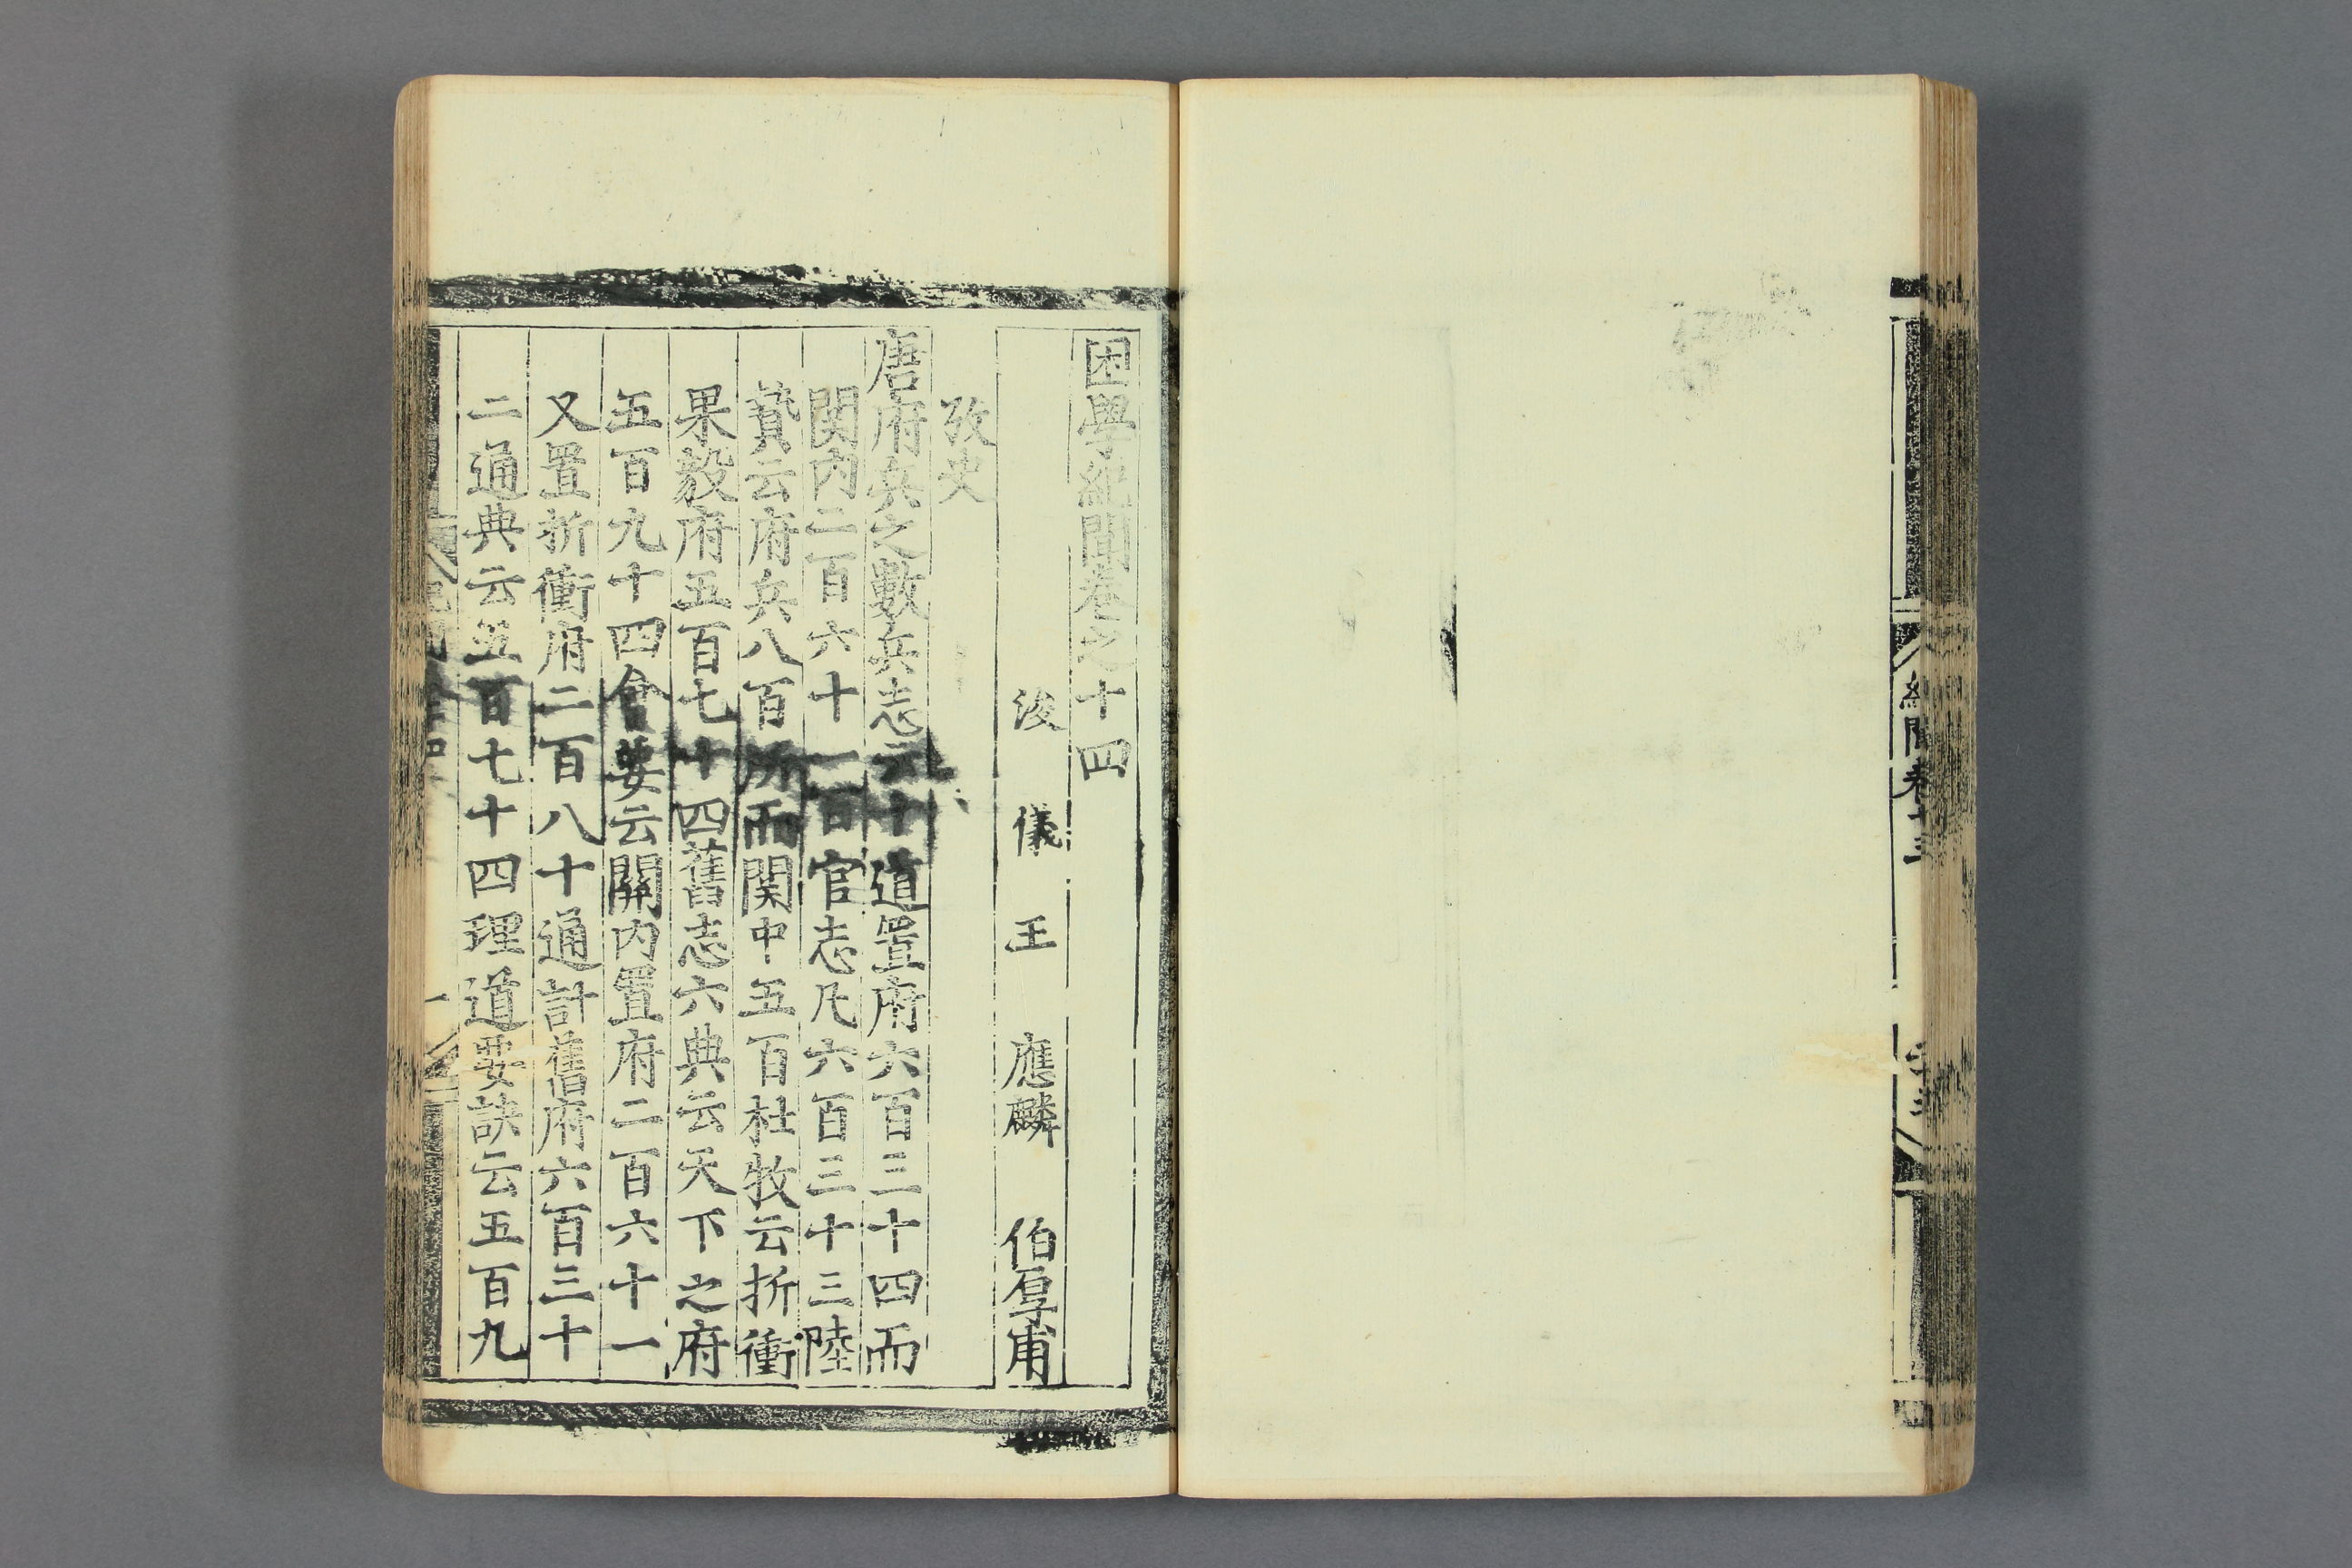 困學紀聞卷之十四
浚儀王應麟伯厚甫
攷史
唐府兵之數兵志云十道置府六百三十四而
関内二百六十一百官志凡六百三十三陸
贄云府兵八百所而関中五百杜牧云折衝
果毅府五百七十四舊志六典云天下之府
五百九十四會要云關内置府二百六十一
又置折衝府二百八十通計舊府六百三十
二通典云五百七十四理道要訣云五百九
紀聞卷十三